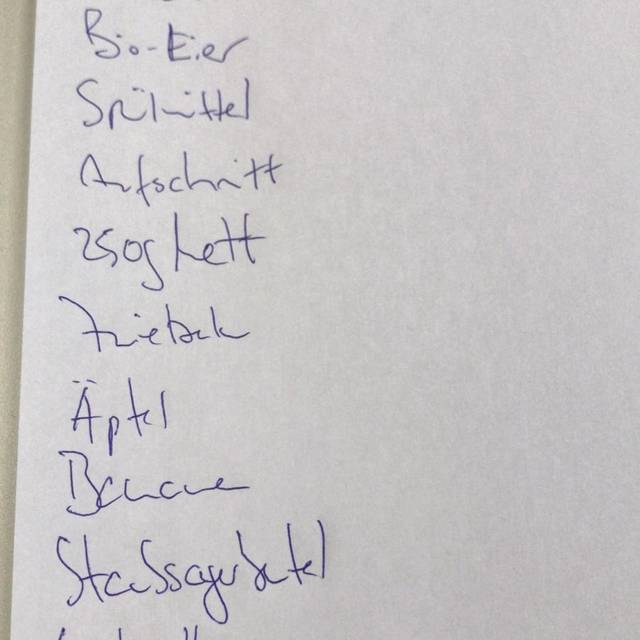 Bio-Eier
Spülmittel
Aufschnitt
250g Mett
Zwieback
Äpfel
Banane
Staubsaugerbeutel